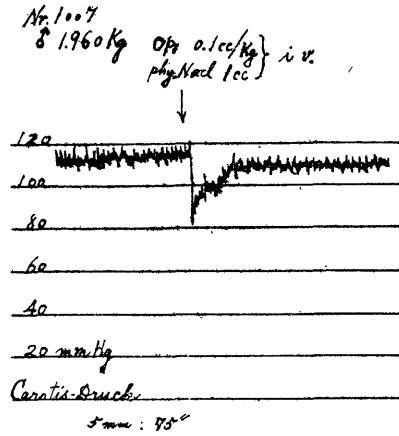 Nr. 1007
♂ 1.960 Kg Op. 0.1cc/Kg } i v.
phy. Nacl 1cc
120
100
80
60
40
20 mm Hg
Carotis-Druck
5 mm : 75″